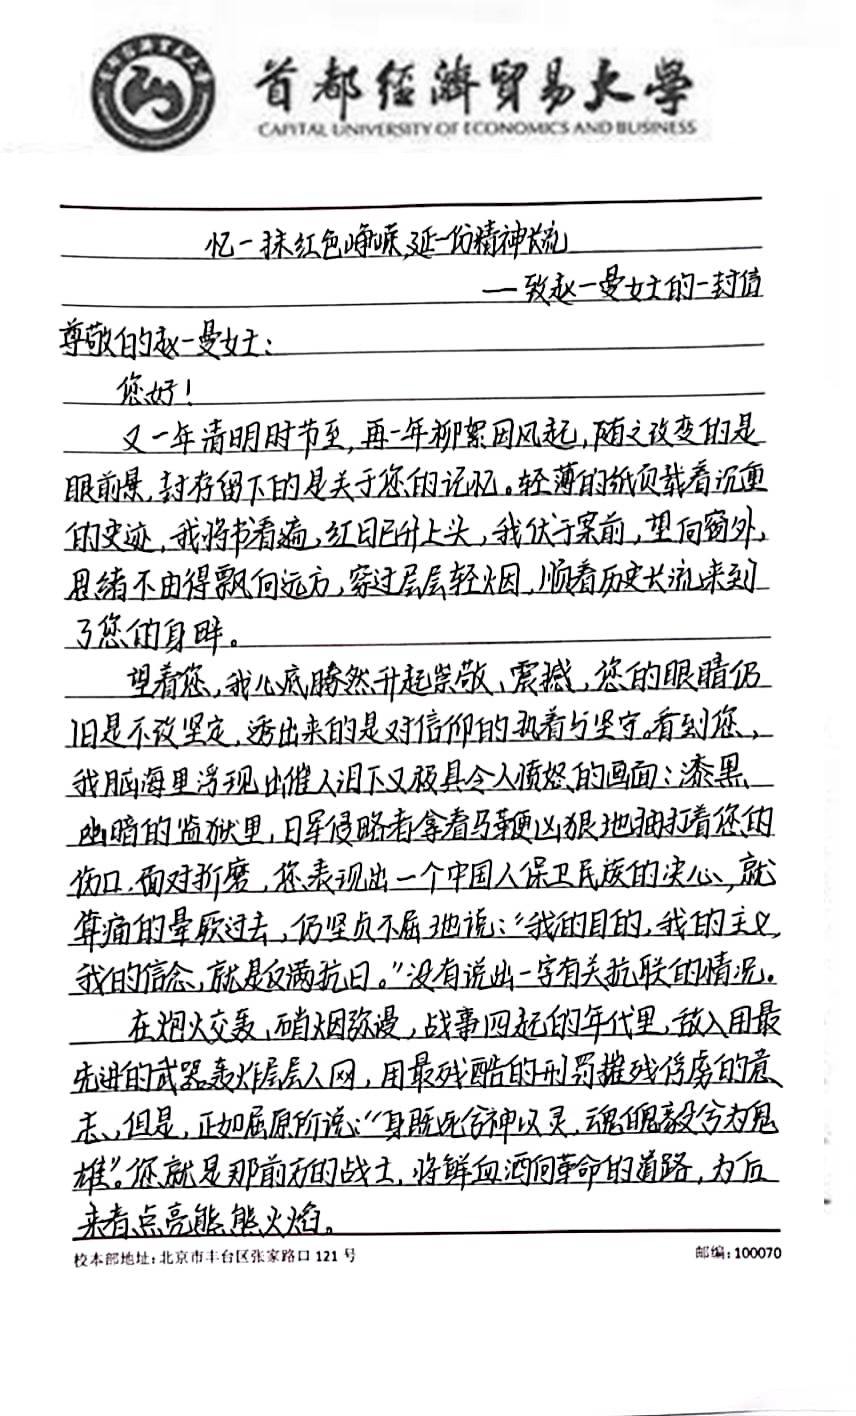 首都經濟貿易大學
CAPITAL UNIVERSITY OF ECONOMICS AND BUSINESS
忆一抹红色峥嵘,延一份精神长流
——致赵一曼女士的一封信
尊敬的赵一曼女士：
您好！
又一年清明时节至，再一年柳絮因风起，随之改变的是
眼前景，封存留下的是关于您的记忆。轻薄的纸页载着沉重
的史迹，我将书看遍，红日已升上头，我伏于案前，望向窗外，
思绪不由得飘向远方，穿过层层轻烟，顺着历史长流来到
了您的身畔。
望着您，我心底腾然升起崇敬、震撼，您的眼睛仍
旧是不改坚定，透出来的是对信仰的执着与坚守。看到您，
我脑海里浮现出催人泪下又极具令人愤怒的画面：漆黑、
幽暗的监狱里，日军侵略者拿着马鞭凶狠地抽打着您的
伤口，面对折磨，您表现出一个中国人保卫民族的决心，就
算痛的晕厥过去，仍坚贞不屈地说：“我的目的，我的主义，
我的信念，就是反满抗日。”没有说出一字有关抗联的情况。
在炮火交轰，硝烟弥漫，战事四起的年代里，敌人用最
先进的武器轰炸层层人网，用最残酷的刑罚摧残俘虏的意
志，但是，正如屈原所说：“身既死兮神以灵，魂魄毅兮为鬼
雄”。您就是那前方的战士，将鲜血洒向革命的道路，为后
来者点亮熊熊火焰。
校本部地址：北京市丰台区张家路口 121 号
邮编：100070